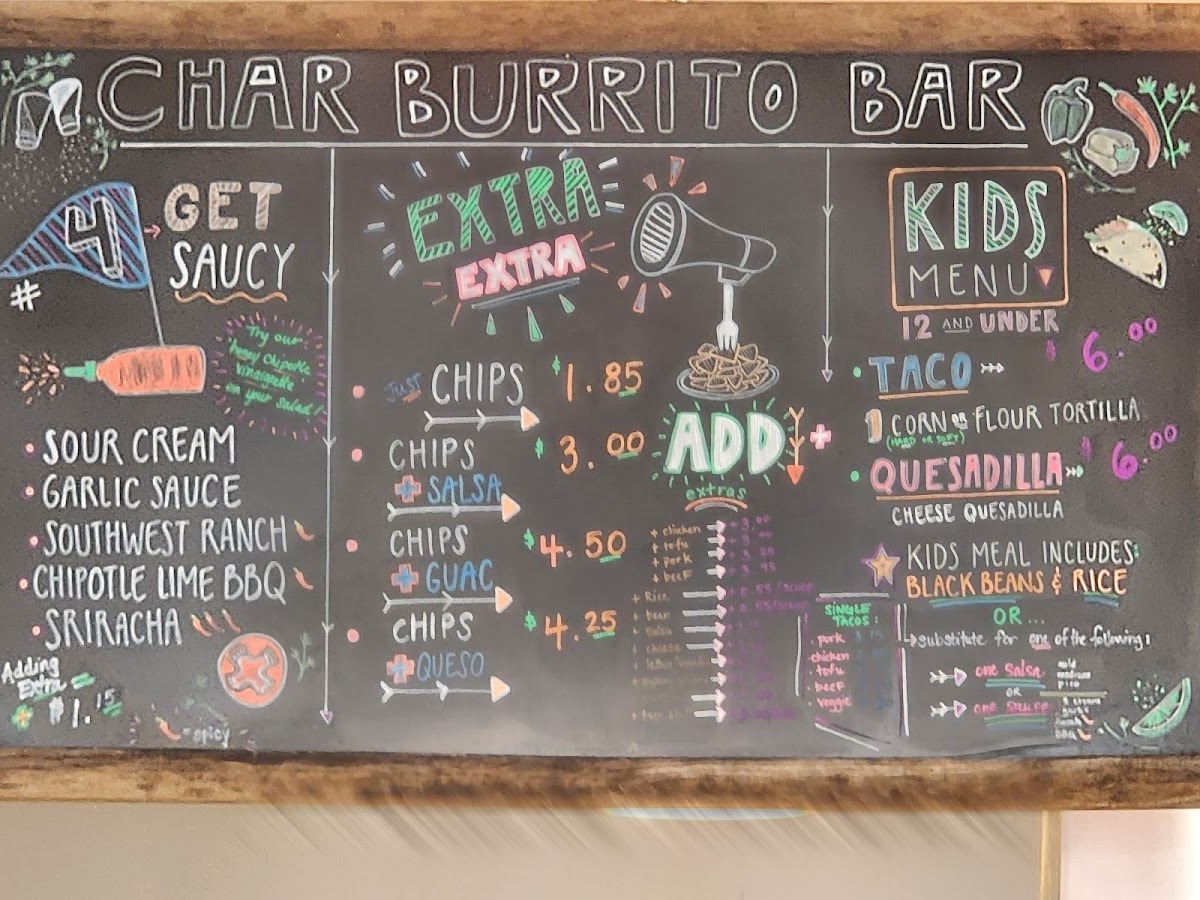 CHAR BURRITO BAR
#4 GET
SAUCY
Try our
honey chipotle
vinaigrette
on your salad!
SOUR CREAM
GARLIC SAUCE
SOUTHWEST RANCH
CHIPOTLE LIME BBQ
SRIRACHA
Adding
Extra
+ $1.15
= spicy
EXTRA
EXTRA
JUST CHIPS $1.85
CHIPS $3.00
+ SALSA
CHIPS $4.50
+ GUAC
CHIPS $4.25
+ QUESO
ADD +
extras
+ chicken + 3.00
+ tofu
+ pork
+ beef
+ Rice
+ bean
+ salsa
+ cheese
SINGLE
TACOS:
pork
chicken
tofu
beef
veggie
KIDS
MENU
12 AND UNDER
TACO $6.00
1 CORN OR FLOUR TORTILLA
(HARD OR SOFT)
QUESADILLA $6.00
CHEESE QUESADILLA
KIDS MEAL INCLUDES:
BLACK BEANS & RICE
OR...
substitute for one of the following:
one salsa
mild
medium
OR
one sauce